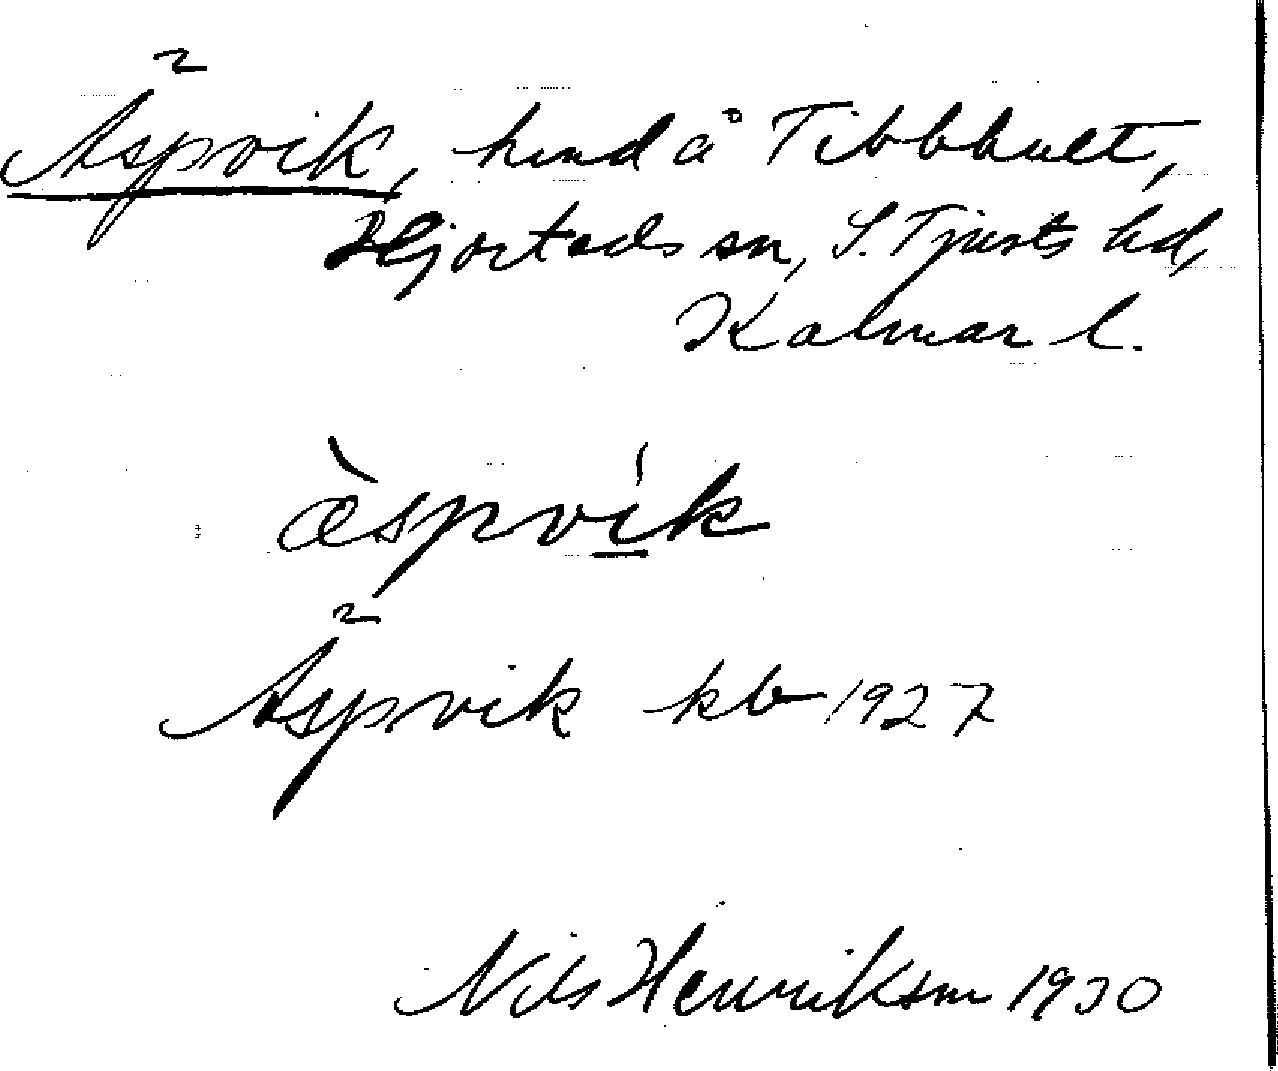 Äspvik, hmd å Tibbhult,
Hjorteds sn, S. Tjusts hd,
Kalmar l.
æ̀spvík
Äspvik kb 1927
Nils Henriksson 1930